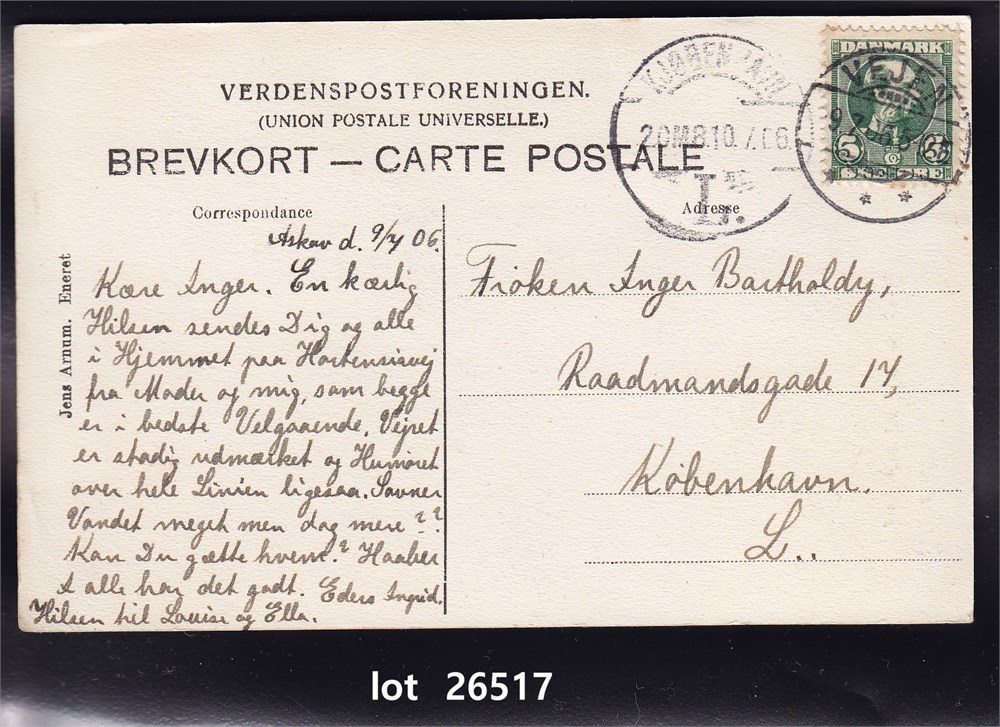 VERDENSPOSTFORENINGEN.
(UNION POSTALE UNIVERSELLE.)
BREVKORT — CARTE POSTALE
KJØBENHAVN
20M8.10.7.06
L.
DANMARK
5 25
ØRE ØRE
VEJEN
9.7.06.5
Correspondance
Adresse
Jens Arnum. Eneret
Askov d. 9/7 06.
Kære Inger. En kærlig
Hilsen sendes Dig og alle
i Hjemmet paa Hortensiavej
fra Moder og mig, som begge
er i bedste Velgaaende. Vejret
er stadig udmærket og Humøret
over hele Linien ligesaa. Savner
Vandet meget men dog mere ??
Kan Du gætte hvem? Haaber
I alle har det godt. Eders Ingrid.
Hilsen til Louise og Ella.
Frøken Inger Bartholdy,
Raadmandsgade 17,
København.
L..
lot 26517